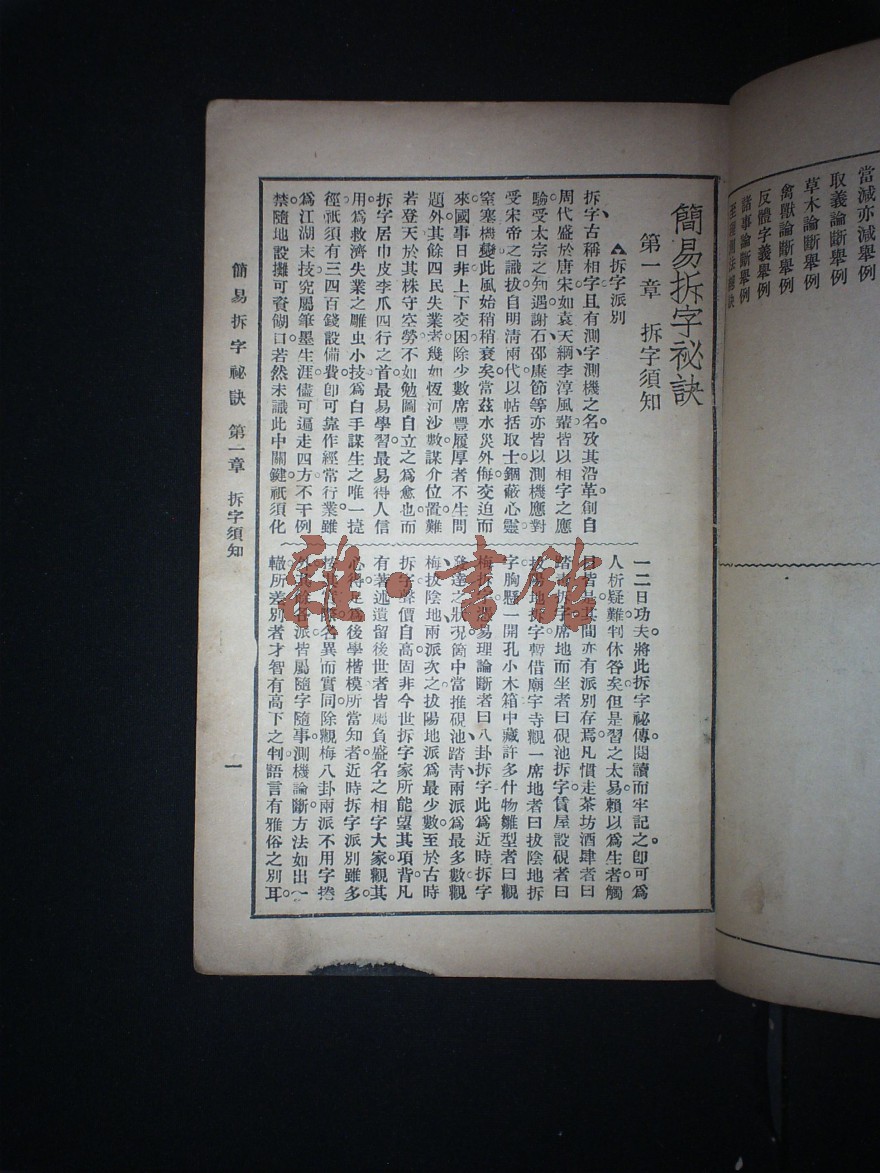 當減亦減舉例
取義論斷舉例
草木論斷舉例
禽獸論斷舉例
反體字義舉例
諸事論斷舉例
簡易拆字祕訣
第一章 拆字須知
▲拆字派別
拆字古稱相字且有測字測機之名攷其沿革創自
周代盛於唐宋如袁天綱李淳風輩皆以相字之應
驗受太宗之知遇謝石邵康節等亦皆以測機應對
受宋帝之識拔自明清兩代以帖括取士錮蔽心靈
窒塞機變此風始稍稍衰矣當茲水災外侮交迫而
來國事日非上下交困除少數席豐履厚者不生問
題外其餘四民失業者幾如恆河沙數謀介位置難
若登天於其株守空勞不如勉圖自立之為愈也而
拆字居巾皮李爪四行之首最易學習最易得人信
用為救濟失業之雕虫小技為白手謀生之唯一捷
徑祇須有三四百錢設備費即可靠作經常行業雖
為江湖末技究屬筆墨生涯儘可遍走四方不干例
禁隨地設攤可資餬口若然未識此中關鍵祇須化
一二日功夫將此拆字祕傳閱讀而牢記之即可為
人析疑難判休咎矣但是習之太易賴以為生者觸
目皆是其間亦有派別存焉凡慣走茶坊酒肆者曰
踏青拆字席地而坐者曰硯池拆字賃屋設硯者曰
拔陽地拆字暫借廟宇寺觀一席地者曰拔陰地拆
字胸懸一開孔小木箱中藏許多什物雛型者曰觀
梅拆字憑易理論斷者曰八卦拆字此為近時拆字
發達之狀況箇中當推硯池踏青兩派為最多數觀
梅拔陰地兩派次之拔陽地派為最少數至於古時
拆字聲價自高固非今世拆字家所能望其項背凡
有著述遺留後世者皆屬負盛名之相字大家觀其
必得足為後學楷模所當知者近時拆字派別雖多
按其實際名異而實同除觀梅八卦兩派不用字捲
外其餘各派皆屬隨字隨事測機論斷方法如出一
轍所差別者才智有高下之判語言有雅俗之別耳
簡易拆字祕訣 第一章 拆字須知
一
雜·書館